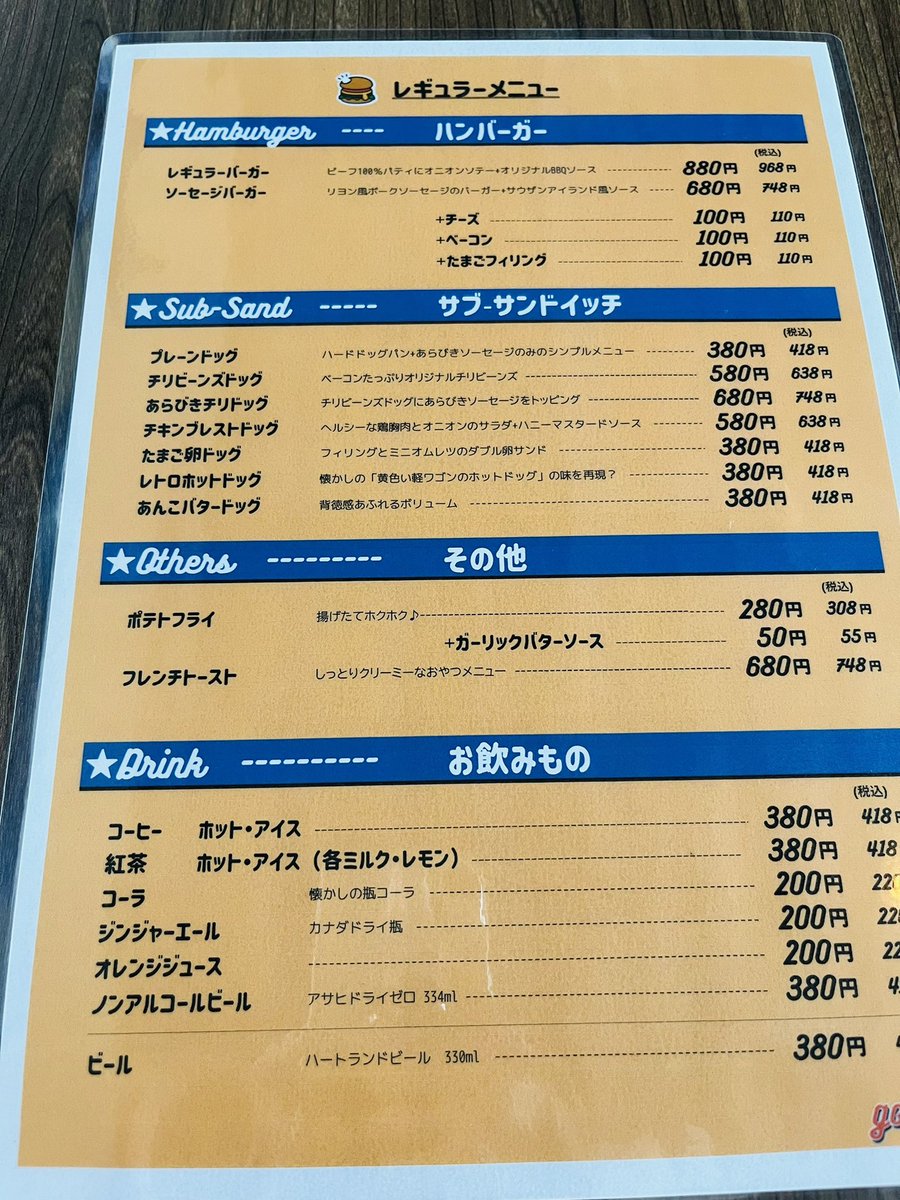 レギュラーメニュー
★Hamburger ---- ハンバーガー
(税込)
レギュラーバーガー ビーフ100%パティにオニオンソテー+オリジナルBBQソース 880円 968円
ソーセージバーガー リヨン風ポークソーセージのバーガー+サウザンアイランド風ソース 680円 748円
+チーズ 100円 110円
+ベーコン 100円 110円
+たまごフィリング 100円 110円
★Sub-Sand ----- サブ-サンドイッチ
(税込)
プレーンドッグ ハードドッグパン+あらびきソーセージのみのシンプルメニュー 380円 418円
チリビーンズドッグ ベーコンたっぷりオリジナルチリビーンズ 580円 638円
あらびきチリドッグ チリビーンズドッグにあらびきソーセージをトッピング 680円 748円
チキンブレストドッグ ヘルシーな鶏胸肉とオニオンのサラダ+ハニーマスタードソース 580円 638円
たまご卵ドッグ フィリングとミニオムレツのダブル卵サンド 380円 418円
レトロホットドッグ 懐かしの「黄色い軽ワゴンのホットドッグ」の味を再現? 380円 418円
あんこバタードッグ 背徳感あふれるボリューム 380円 418円
★Others --------- その他
(税込)
ポテトフライ 揚げたてホクホク♪ 280円 308円
+ガーリックバターソース 50円 55円
フレンチトースト しっとりクリーミーなおやつメニュー 680円 748円
★Drink ---------- お飲みもの
(税込)
コーヒー ホット・アイス 380円 418円
紅茶 ホット・アイス(各ミルク・レモン) 380円 418
コーラ 懐かしの瓶コーラ 200円 220
ジンジャーエール カナダドライ瓶 200円 220
オレンジジュース 200円 22
ノンアルコールビール アサヒドライゼロ 334ml 380円 4
ビール ハートランドビール 330ml 380円